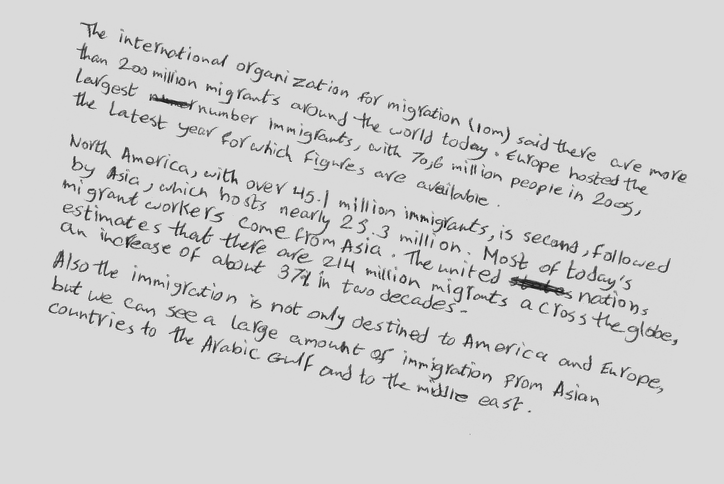 The international organization for migration (iom) said there are more
than 200 million migrants around the world today. Europe hosted the
largest number immigrants, with 70,6 million people in 2005,
the latest year for which figures are available.
North America, with over 45.1 million immigrants, is second, followed
by Asia, which hosts nearly 25.3 million. Most of today's
migrant workers come from Asia. The united nations
estimates that there are 214 million migrants across the globe,
an increase of about 37% in two decades-
Also the immigration is not only destined to America and Europe,
but we can see a large amount of immigration from Asian
countries to the Arabic Gulf and to the middle east.